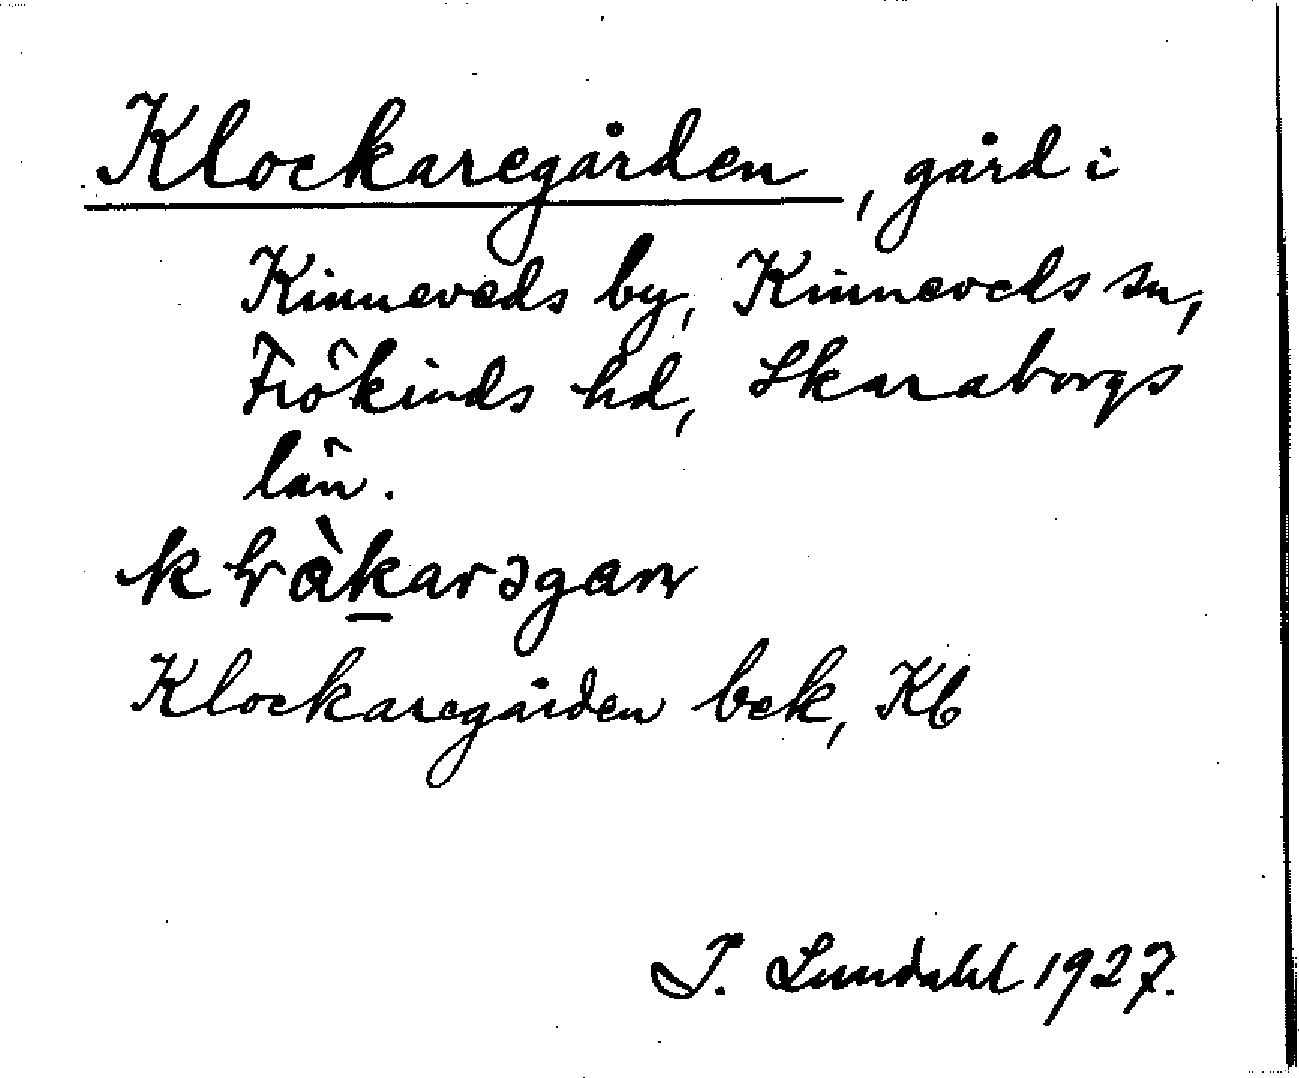 Klockaregården, gård i
Kinneveds by, Kinneveds sn,
Frökinds hd, Skaraborgs
län.
Klockaregården bek, Kb
I. Lundahl 1927.